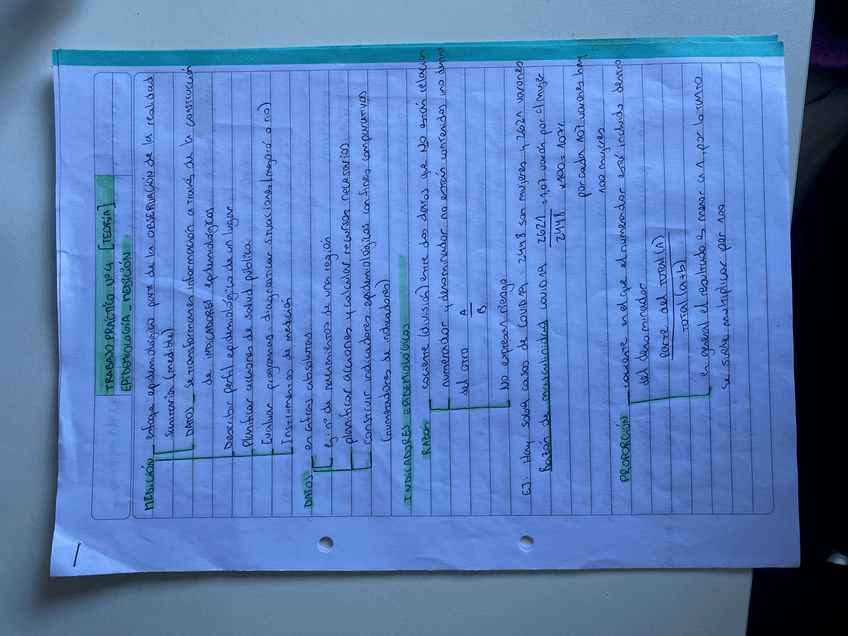 TRABAJO PRÁCTICO Nº 4 [TEORÍA]
EPIDEMIOLOGÍA _ MEDICIÓN
MEDICIÓN _ enfoque epidemiológico parte de la OBSERVACIÓN de la realidad
sanitaria (medible)
DATOS _ se transforman en información a través de la construcción
de INDICADORES epidemiológicos
Describir perfil epidemiológico de un lugar
Planificar acciones de salud pública
Evaluar programas, diagnosticar situaciones (mejoró o no)
Instrumentos de medición
DATOS _ en cifras absolutas
ej: nº de nacimientos de una región
planificar acciones y calcular recursos necesarios
construir indicadores epidemiológicos con fines comparativos
(numeradores de indicadores)
INDICADORES EPIDEMIOLÓGICOS
RAZÓN _ cociente (división) entre dos datos que NO están relacion
numerador y denominador no están contenidos uno dentro
del otro A
B
No expresan riesgo
EJ: Hay 5069 casos de COVID 19, 2448 son mujeres y 2621 varones
Razón de masculinidad COVID 19 2621 = 1,07 varón por c/mujer
2448 x100 = 107%
por cada 107 varones hay
100 mujeres
PROPORCIÓN _ cociente en el que el numerador está incluido dentro
del denominador
Parte del TOTAL (A)
TOTAL (a+b)
En general el resultado es menor a 1, por lo tanto
se suele multiplicar por 100